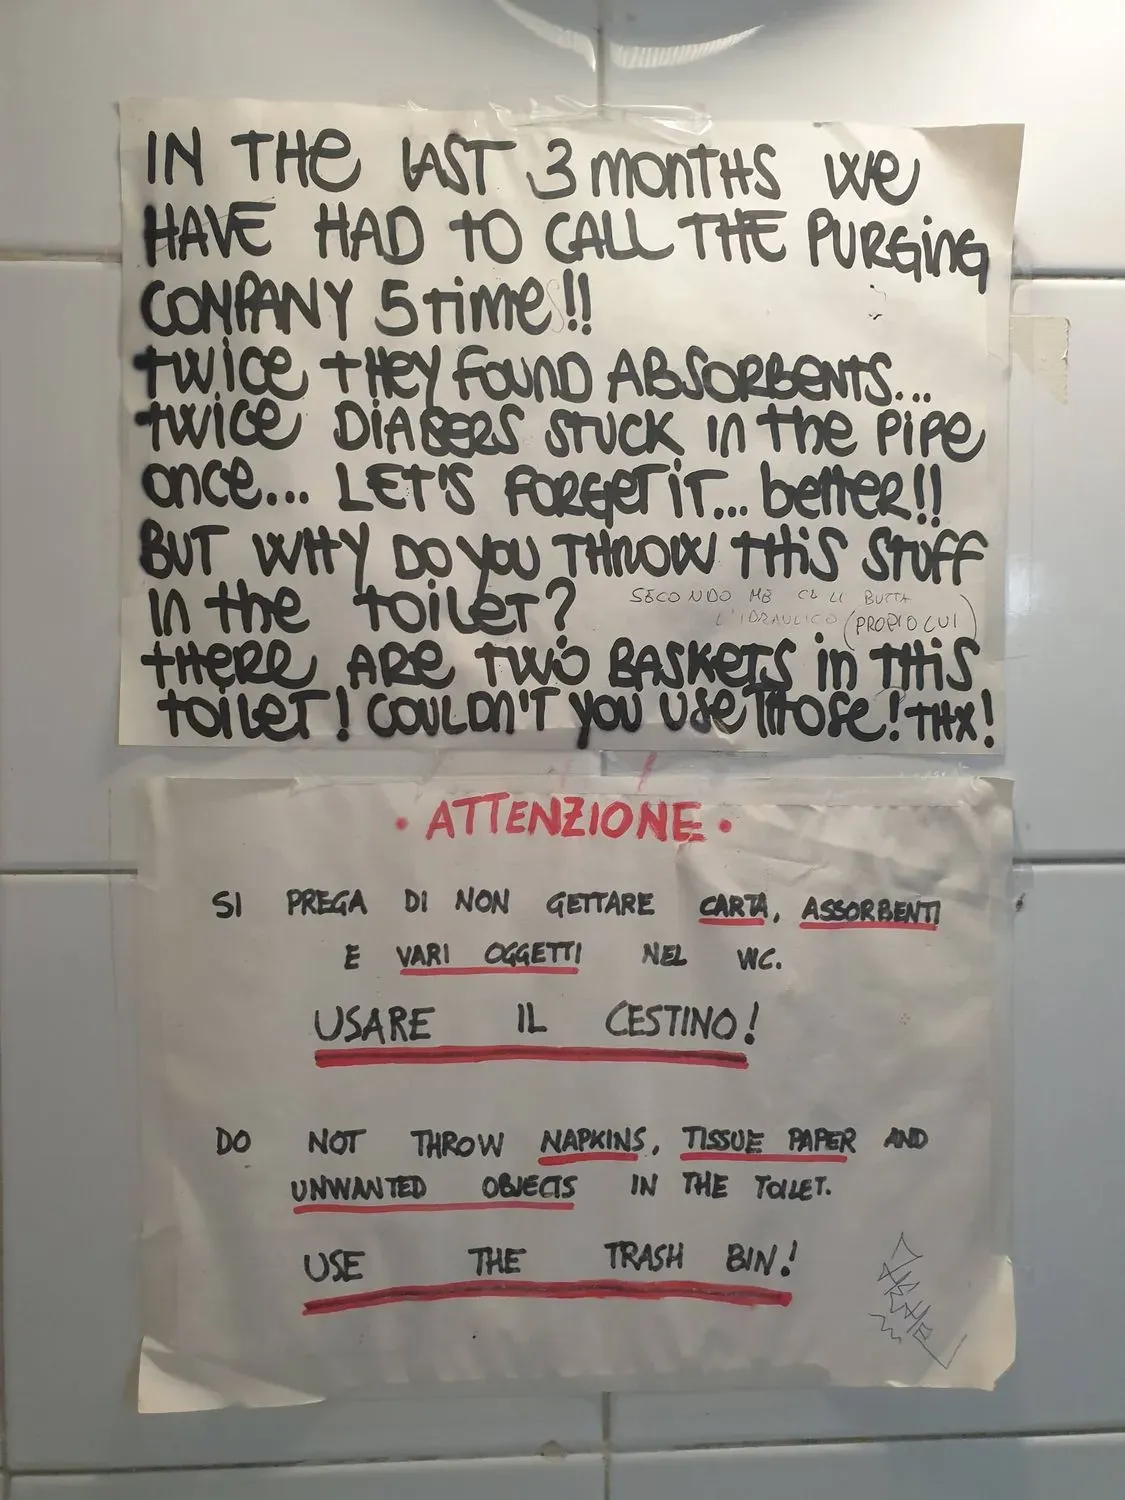 IN THE LAST 3 MONTHS WE
HAVE HAD TO CALL THE PURGING
COMPANY 5 TIMES!!
TWICE THEY FOUND ABSORBENTS...
TWICE DIABERS STUCK IN THE PIPE
ONCE... LET'S FORGET IT... BETTER!!
BUT WHY DO YOU THROW THIS STUFF
IN THE TOILET?
SECONDO ME CE LI BUTTA
L'IDRAULICO (PROPIO LUI)
THERE ARE TWO BASKETS IN THIS
TOILET! COULDN'T YOU USE THOSE! THX!
• ATTENZIONE •
SI PREGA DI NON GETTARE CARTA, ASSORBENTI
E VARI OGGETTI NEL WC.
USARE IL CESTINO!
DO NOT THROW NAPKINS, TISSUE PAPER AND
UNWANTED OBJECTS IN THE TOILET.
USE THE TRASH BIN!